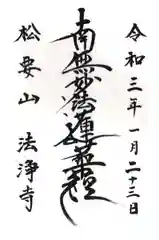 令和三年一月二十三日
南無妙法蓮華経
松要山　法浄寺